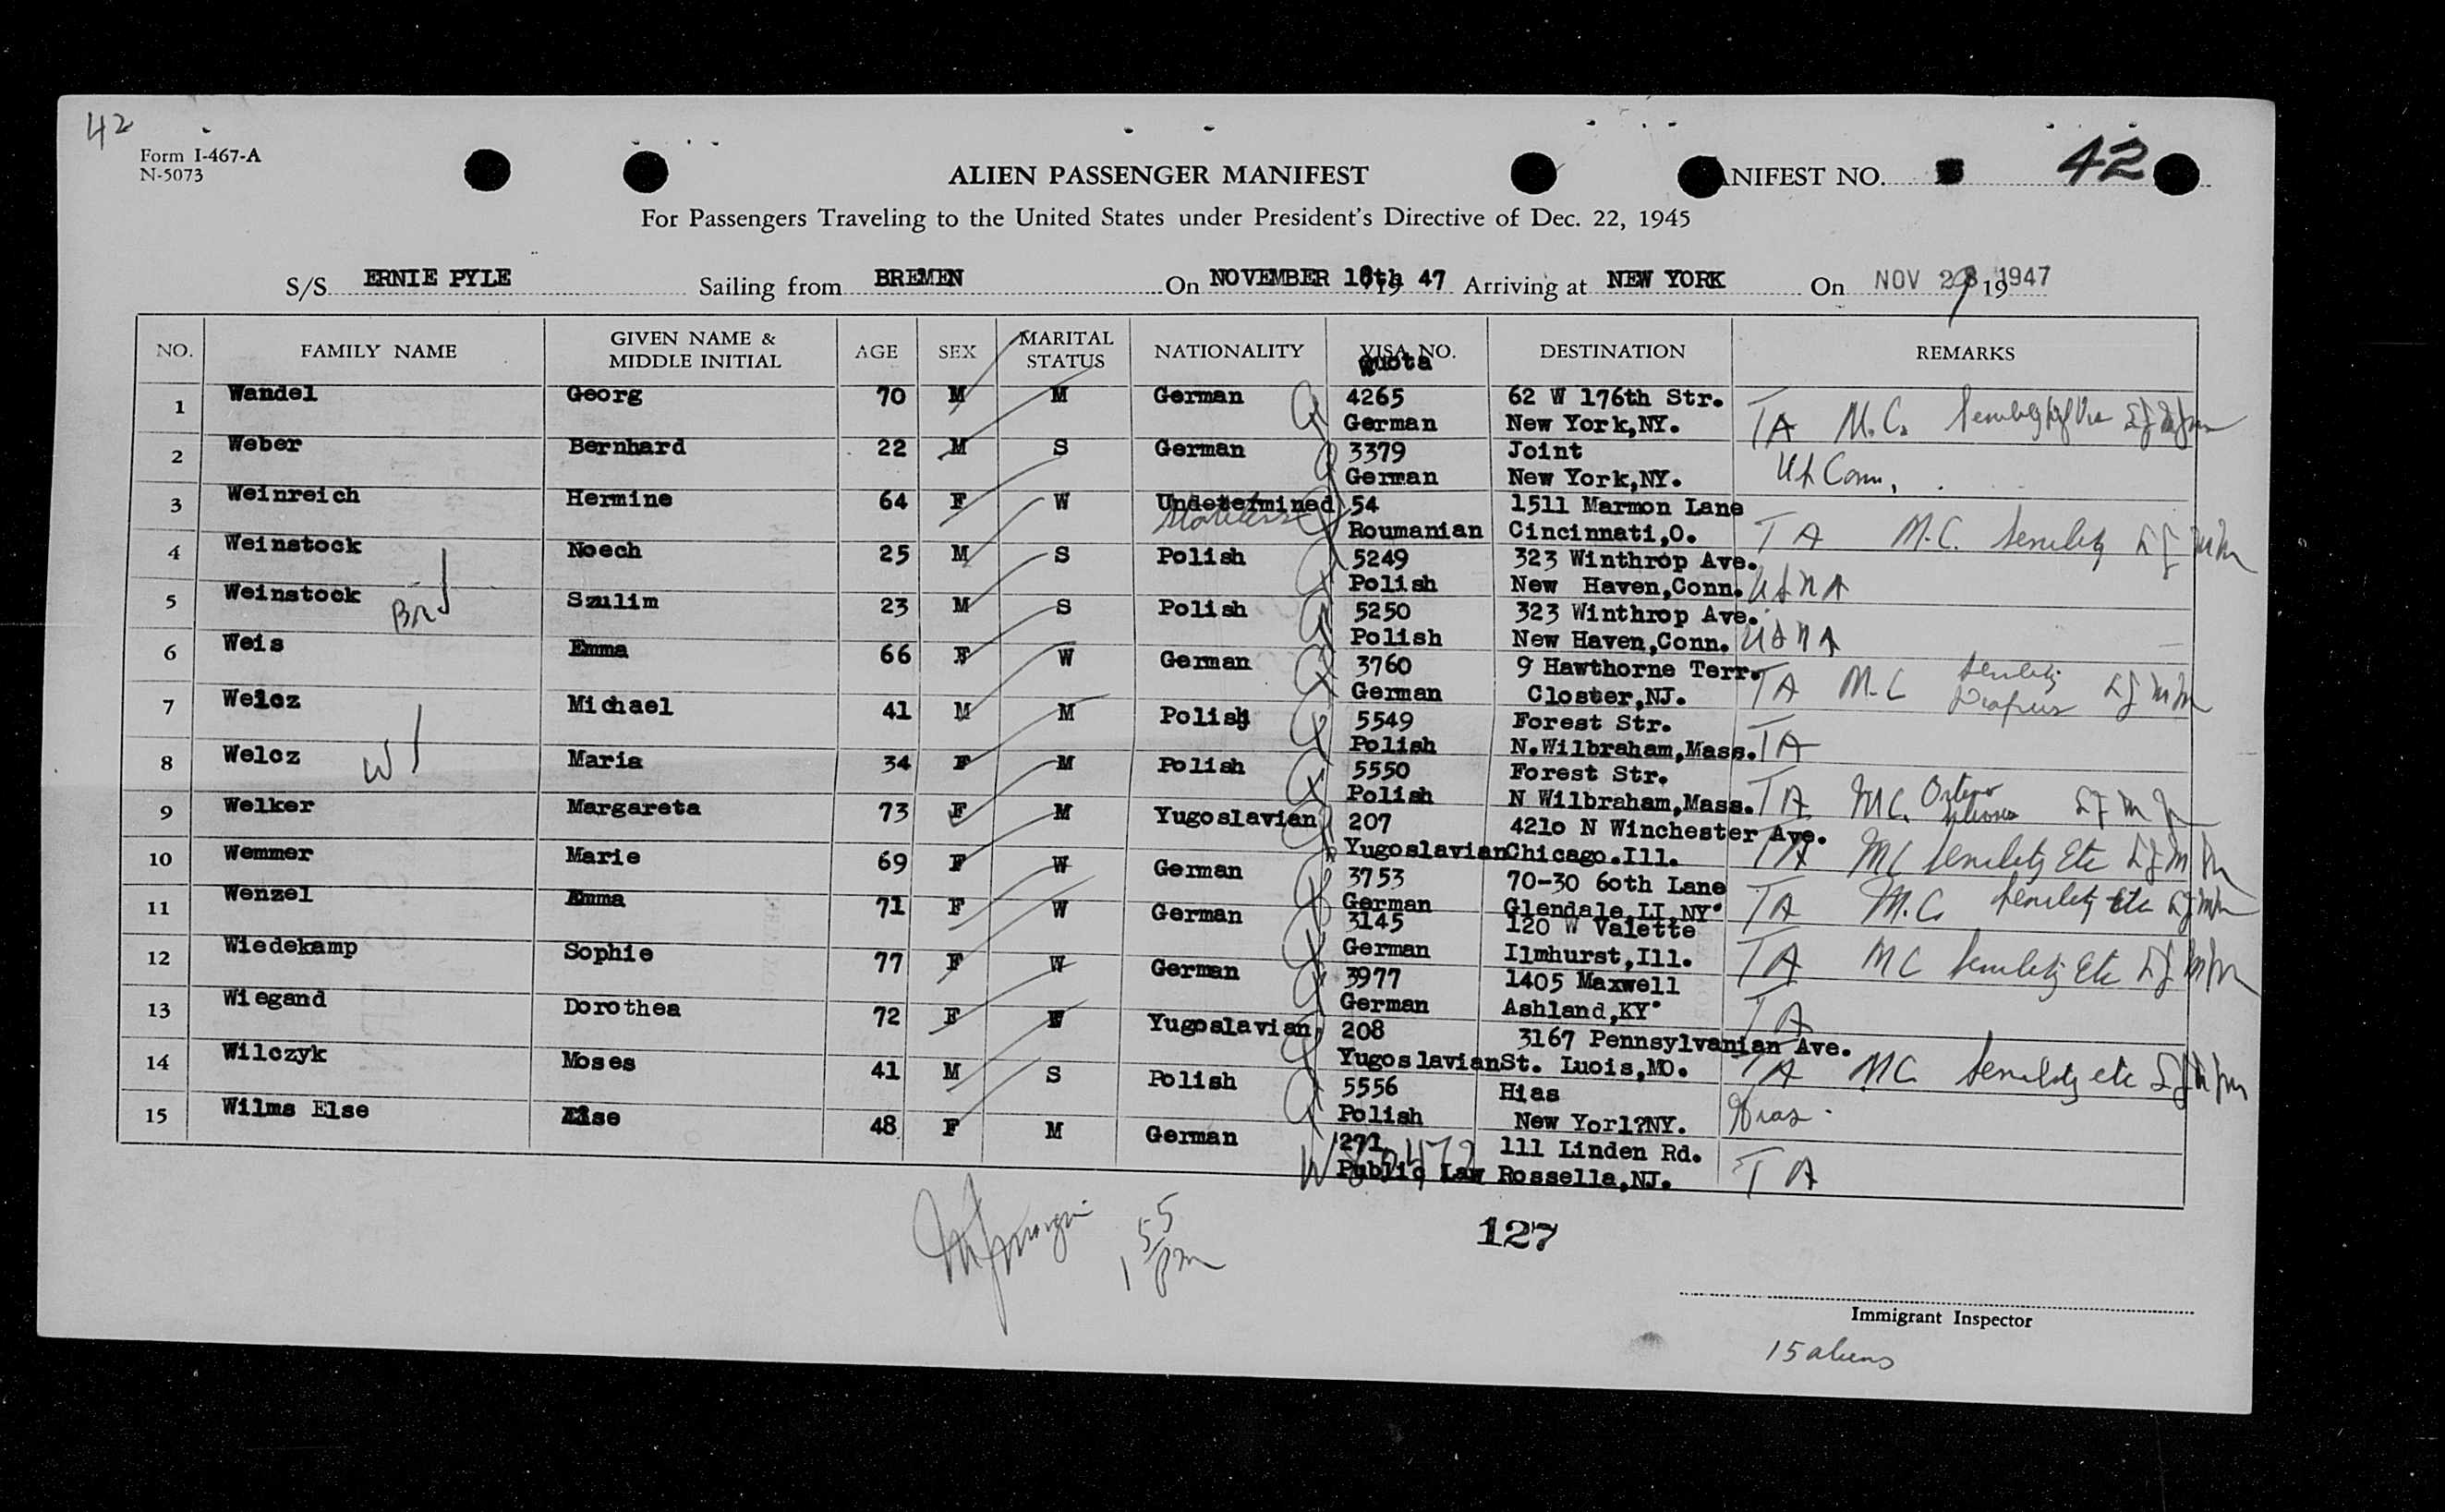 42
Form I-467-A
N-5073
ALIEN PASSENGER MANIFEST
ANIFEST NO. 42
For Passengers Traveling to the United States under President's Directive of Dec. 22, 1945
S/S ERNIE PYLE Sailing from BREMEN On NOVEMBER 18th 19 47 Arriving at NEW YORK On NOV 28 19 1947
NO. FAMILY NAME GIVEN NAME & MIDDLE INITIAL AGE SEX MARITAL STATUS NATIONALITY VISA NO. quota DESTINATION REMARKS
1 Wandel Georg 70 M M German 4265 62 W 176th Str. TA M.C.
German New York,NY.
2 Weber Bernhard 22 M S German 3379 Joint
German New York,NY. Conn.
3 Weinreich Hermine 64 F W Undetermined 54 1511 Marmon Lane
Roumanian Cincinnati,O. TA M.C. Senility
4 Weinstock Noech 25 M S Polish 5249 323 Winthrop Ave.
Polish New Haven,Conn. USNA
5 Weinstock Bro Szulim 23 M S Polish 5250 323 Winthrop Ave.
Polish New Haven,Conn. USNA
6 Weis Emma 66 F W German 3760 9 Hawthorne Terr.
German Closter,NJ. TA M.C Senility
7 Welcz Michael 41 M M Polish 5549 Forest Str.
Polish N.Wilbraham,Mass. TA
8 Welcz W Maria 34 F M Polish 5550 Forest Str.
Polish N Wilbraham,Mass. TA MC.
9 Welker Margareta 73 F M Yugoslavian 207 421o N Winchester Ave.
Yugoslavian Chicago.Ill. TA MC Senility Etc
10 Wemmer Marie 69 F W German 3753 70-30 60th Lane
German Glendale,LI,NY. TA M.C. Senility etc
11 Wenzel Emma 71 F W German 3145 120 W Valette
German Ilmhurst,Ill. TA MC Senility Etc
12 Wiedekamp Sophie 77 F W German 3977 1405 Maxwell
German Ashland,KY. TA
13 Wiegand Dorothea 72 F W Yugoslavian 208 3167 Pennsylvanian Ave.
Yugoslavian St. Luois,MO. TA MC Senility etc
14 Wilczyk Moses 41 M S Polish 5556 Hias
Polish New Yorl?NY. Hias.
15 Wilms Else Else 48 F M German 1271 111 Linden Rd.
Public Law Rossella,NJ. TA
1 55 pm
127
Immigrant Inspector
15 aliens